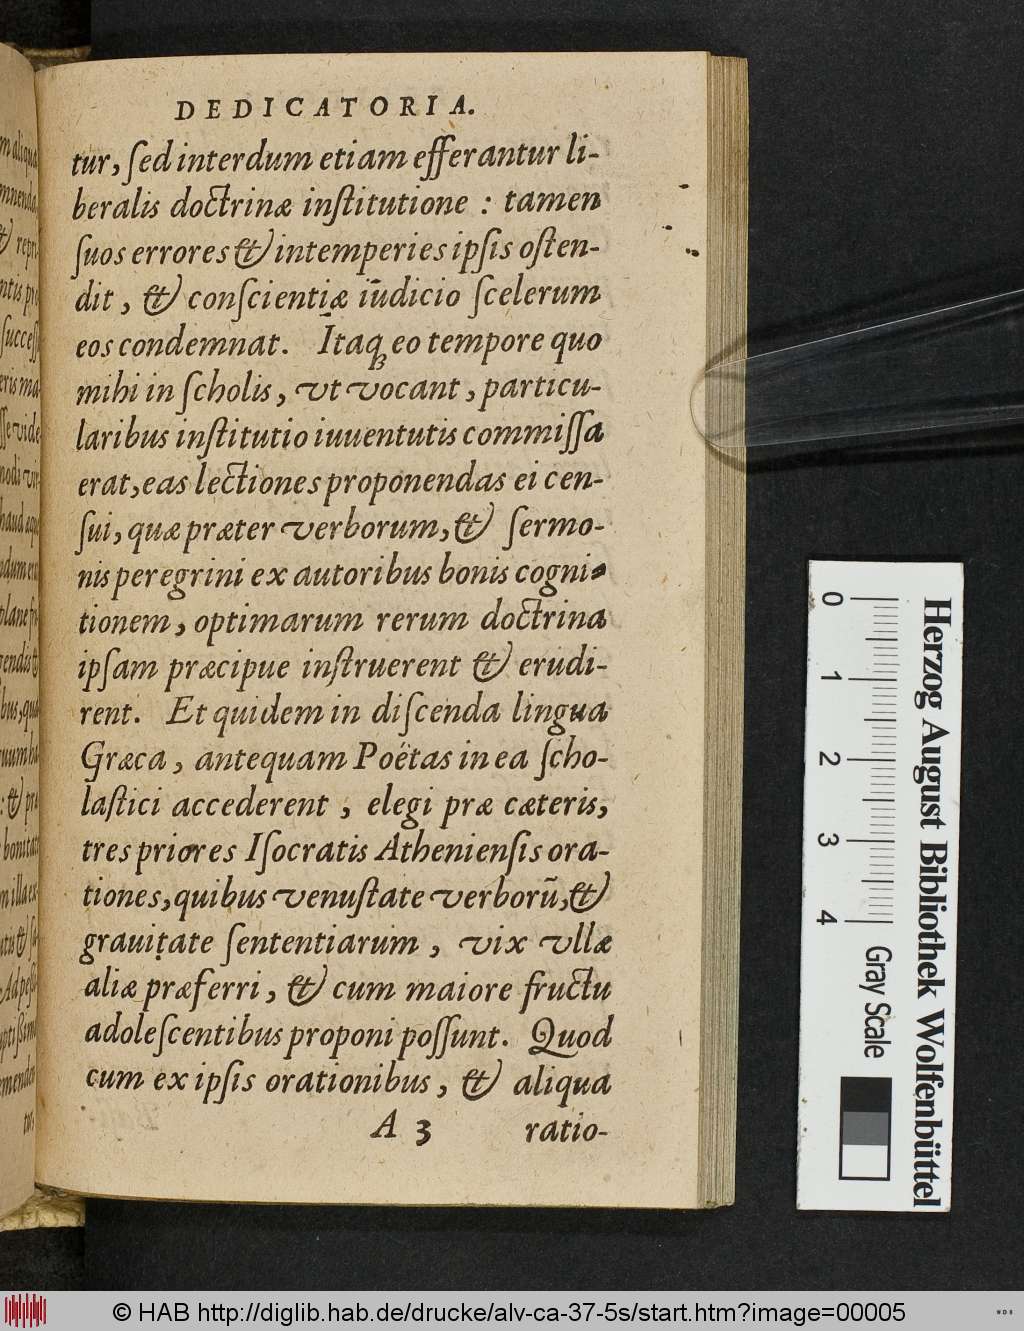 DEDICATORIA.
tur, ſed interdum etiam efferantur li-
beralis doctrinæ inſtitutione : tamen
ſuos errores & intemperies ipſis oſten-
dit, & conſcientiæ iudicio ſcelerum
eos condemnat. Itaq; eo tempore quo
mihi in ſcholis, vt vocant, particu-
laribus inſtitutio iuuentutis commiſſa
erat, eas lectiones proponendas ei cen-
ſui, quæ præter verborum, & ſermo-
nis peregrini ex autoribus bonis cogni-
tionem, optimarum rerum doctrina
ipſam præcipue inſtruerent & erudi-
rent. Et quidem in diſcenda lingua
Græca, antequam Poëtas in ea ſcho-
laſtici accederent, elegi præ cæteris,
tres priores Iſocratis Athenienſis ora-
tiones, quibus venuſtate verborū, &
grauitate ſententiarum, vix vllæ
aliæ præferri, & cum maiore fructu
adoleſcentibus proponi poſſunt. Quod
cum ex ipſis orationibus, & aliqua
A 3 ratio-
0 1 2 3 4 Gray Scale
Herzog August Bibliothek Wolfenbüttel
© HAB http://diglib.hab.de/drucke/alv-ca-37-5s/start.htm?image=00005